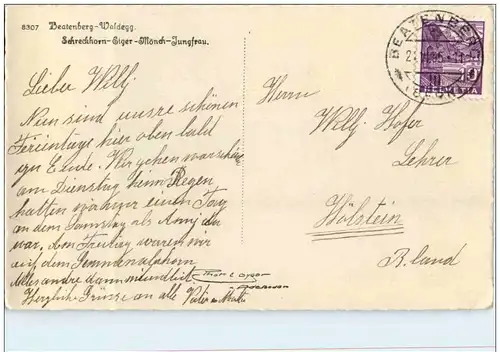 8307 Beatenberg-Waldegg.
Schreckhorn-Eiger-Mönch-Jungfrau.
BEATENBERG
10
HELVETIA
Lieber Willy
Nun sind unsre schönen
Ferientage hier oben bald
zu Ende. Wir gehen
am Dienstag heim Regen
hatten wir nur einen Tag
an dem Samstag als
war. Am Freitag waren wir
auf dem
alles andre dann mündlich
Herzliche Grüsse an alle
Herrn
Willy Hofer
Lehrer
Hölstein
B. land